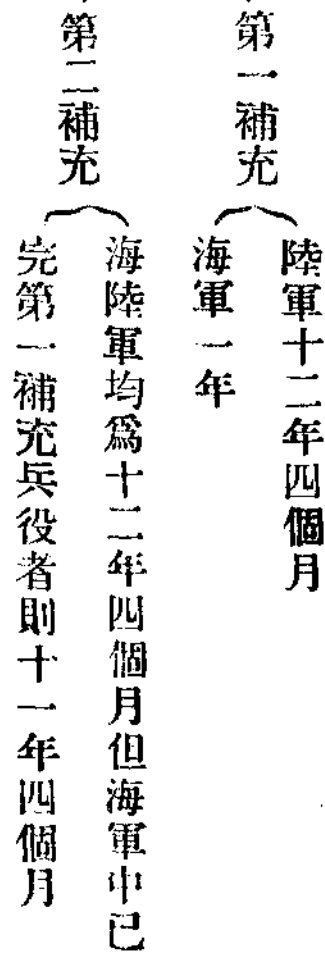 第一補充
陸軍十二年四個月
海軍一年
第二補充
海陸軍均爲十二年四個月但海軍中已
完第一補充兵役者則十一年四個月